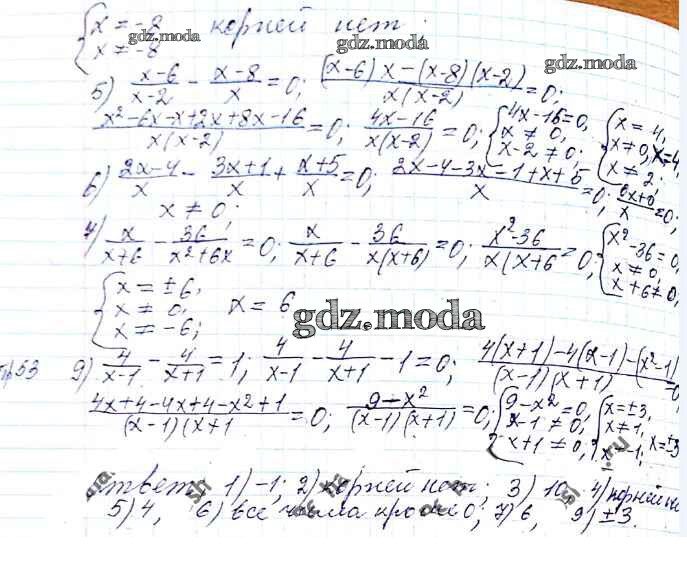 {x = -2 корней нет;
x ≠ -8
5) (x-6)/(x-2) - (x-8)/x = 0; ((x-6)x-(x-8)(x-2))/(x(x-2)) = 0;
(x²-6x-x+2x+8x-16)/(x(x-2)) = 0; (4x-16)/(x(x-2)) = 0; {4x-16=0, x≠0, x-2≠0; {x=4, x≠0, x≠2; x=4,
6) (2x-4)/x - (3x+1)/x + (x+5)/x = 0; (2x-4-3x-1+x+5)/x = 0; (0x+0)/x = 0;
x ≠ 0;
7) x/(x+6) - 36/(x²+6x) = 0; x/(x+6) - 36/(x(x+6)) = 0; (x²-36)/(x(x+6) = 0; {x²-36=0, x≠0, x+6≠0,
{x = ±6, x ≠ 0, x ≠ -6; x = 6
gdz.moda
53 9) 4/(x-1) - 4/(x+1) = 1; 4/(x-1) - 4/(x+1) - 1 = 0; (4(x+1)-4(x-1)-(x²-1))/((x-1)(x+1)) = 0
(4x+4-4x+4-x²+1)/((x-1)(x+1) = 0; (9-x²)/((x-1)(x+1)) = 0; {9-x²=0, x-1≠0, x+1≠0, {x=±3, x≠1, x≠-1, x=±3
Ответ: 1) -1; 2) корней нет; 3) 10, 4) корней
5) 4, 6) все числа кроме 0; 7) 6, 9) ±3.
gdz.moda
gdz.moda
gdz.moda
gdz.moda